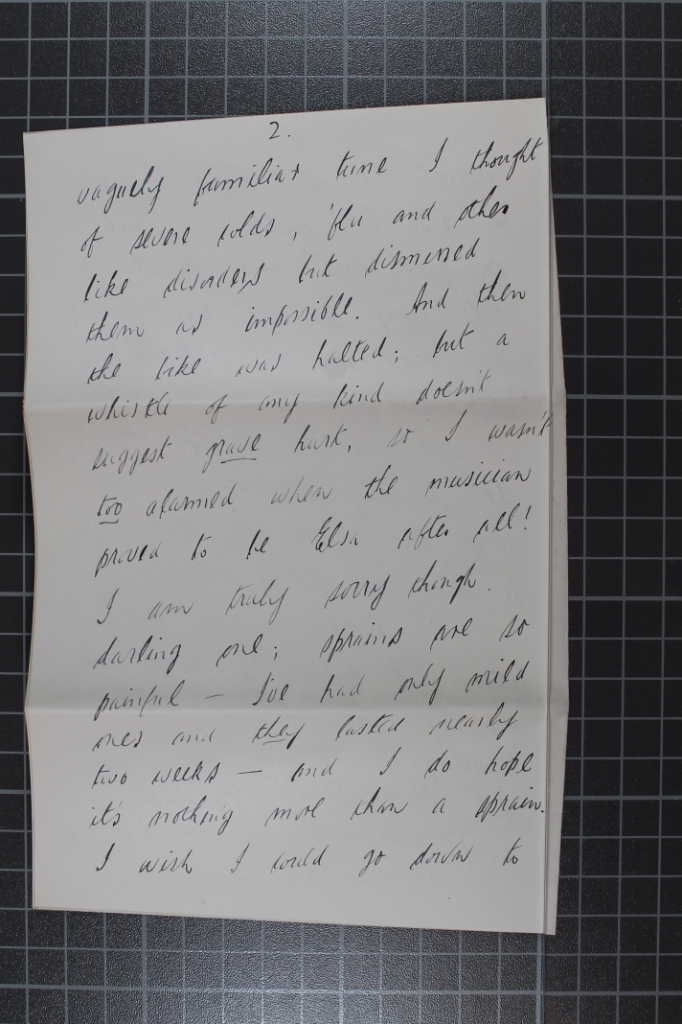 2.
vaguely familiar tune I thought
of severe colds, 'flu and other
like disorders but dismissed
them as impossible. And then
the like was halted; but a
whistle of any kind doesn't
suggest grave hurt, so I wasn't
too alarmed when the musician
proved to be Elsa after all!
I am truly sorry though
darling one; sprains are so
painful — I've had only mild
ones and they lasted nearly
two weeks — and I do hope
it's nothing more than a sprain.
I wish I could go down to